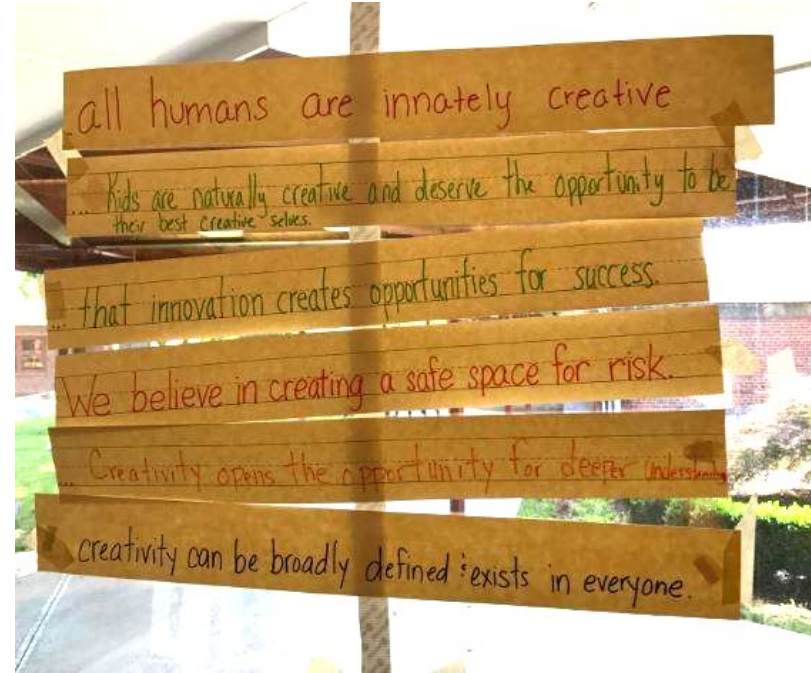 ...all humans are innately creative
... Kids are naturally creative and deserve the opportunity to be
their best creative selves.
... that innovation creates opportunities for success.
We believe in creating a safe space for risk.
... Creativity opens the opportunity for deeper understanding
creativity can be broadly defined & exists in everyone.